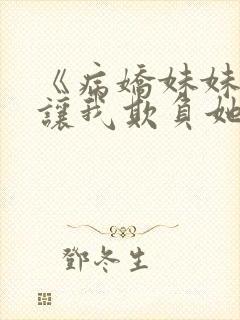 《病嬌妹妹
讓我欺負她
鄧冬生